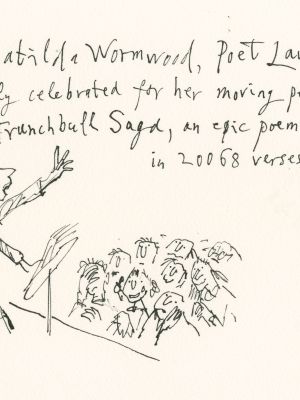 atilda Wormwood, Poet Lau
ly celebrated for her moving pe
Trunchbull Saga, an epic poem
in 20068 verses